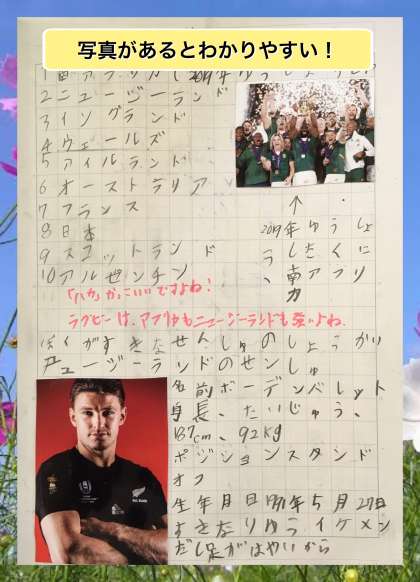 写真があるとわかりやすい！
2019年ゆうしょう
2ニュージーランド
3イングランド
4ウェールズ
5アイルランド
6オーストラリア
7フランス
8日本
9スコットランド
10アルゼンチン
↑
2019年ゆうしょ
うしたくに
、南アフリ
カ
「ハカ」かっこいいですよね！
ラグビーは、アフリカもニュージーランドも強いよね。
ぼくがすきなせんしゅのしょうかい
ニュージーランドのせンしゅ
名前ボーデンバレット
身長、たいじゅう、
187cm、92kg
ポジションスタンド
オフ
生年月日1991年5月27日
すきなりゆうイケメン
だし足がはやいから